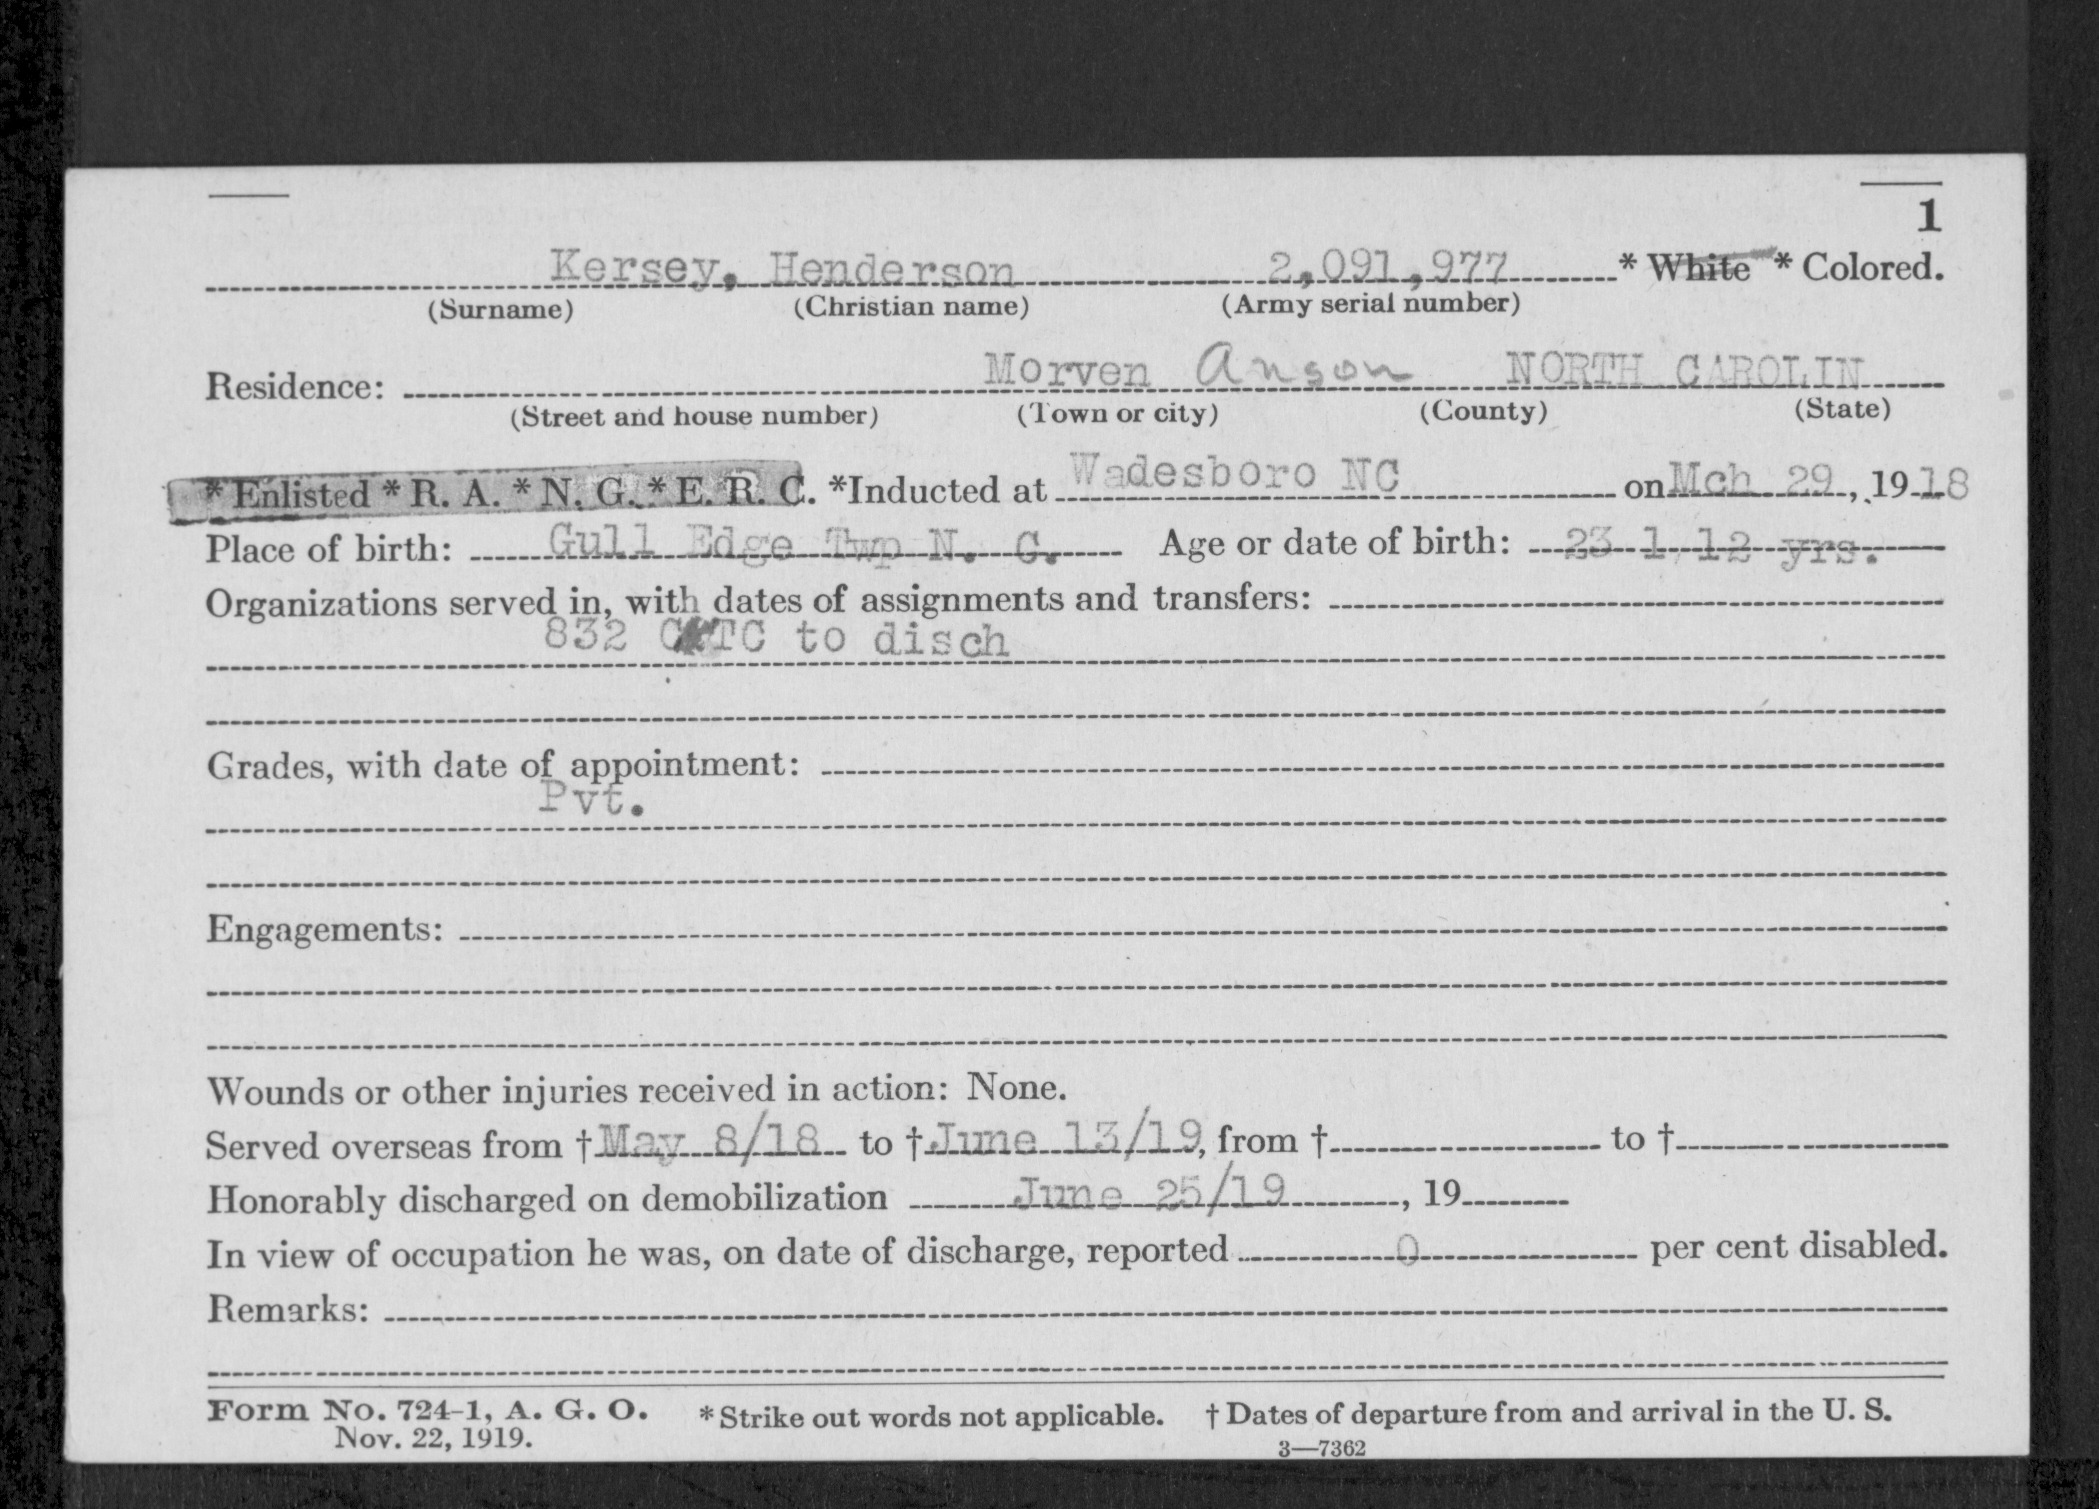 1
Kersey, Henderson 2,091,977 * White * Colored.
(Surname) (Christian name) (Army serial number)
Residence: Morven Anson NORTH CAROLIN
(Street and house number) (Town or city) (County) (State)
* Enlisted * R. A. * N. G. * E. R. C. *Inducted at Wadesboro NC on Mch 29, 1918
Place of birth: Gull Edge Twp N. C. Age or date of birth: 23 1 12 yrs.
Organizations served in, with dates of assignments and transfers:
832 TC to disch
Grades, with date of appointment:
Pvt.
Engagements:
Wounds or other injuries received in action: None.
Served overseas from † May 8/18 to † June 13/19, from † to †
Honorably discharged on demobilization June 25/19, 19
In view of occupation he was, on date of discharge, reported 0 per cent disabled.
Remarks:
Form No. 724-1, A. G. O. * Strike out words not applicable. † Dates of departure from and arrival in the U. S.
Nov. 22, 1919. 3—7362